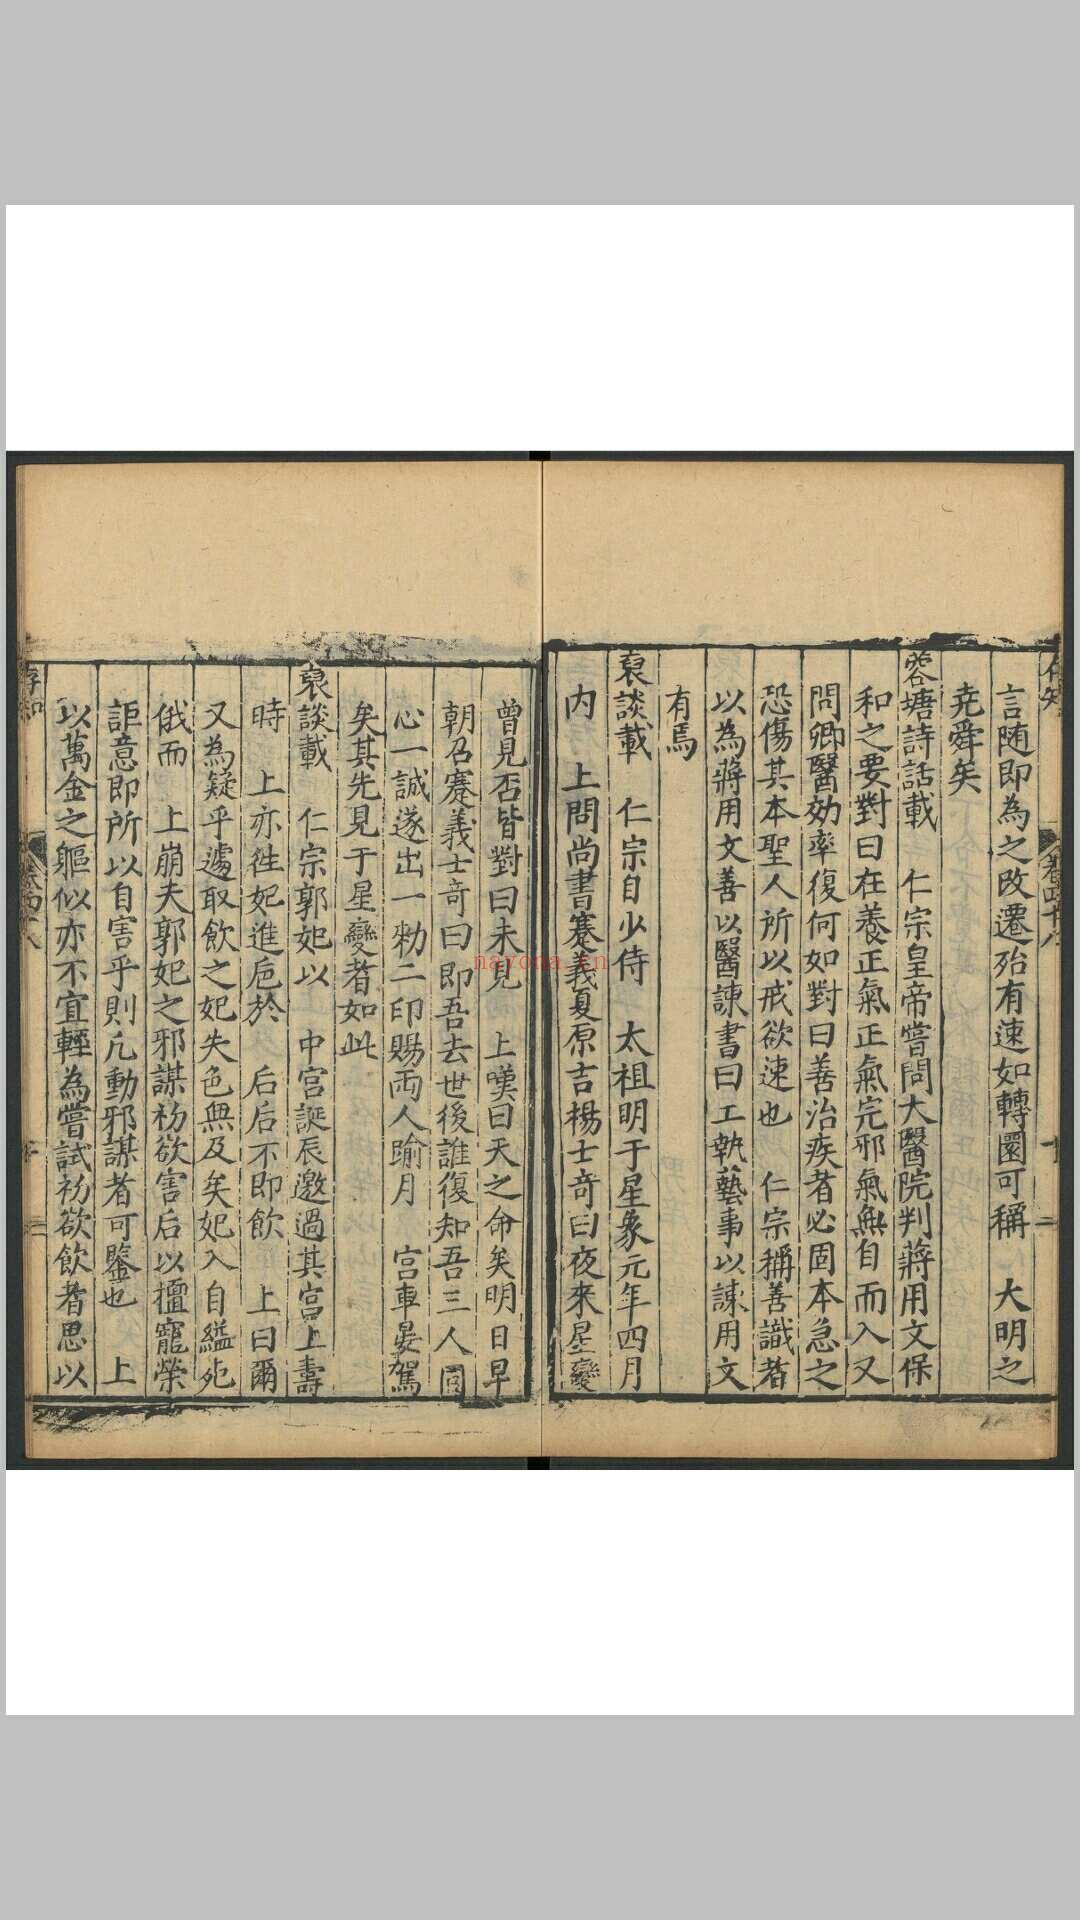 言随即為之改遷殆有速如轉圜可稱 大明之
尭舜矣
蓉塘詩話載 仁宗皇帝嘗問大醫院判蔣用文保
和之要對曰在養正氣正氣完邪氣無自而入又
問卿醫効率復何如對曰善治疾者必固本急之
恐傷其本聖人所以戒欲速也 仁宗稱善識者
以為蔣用文善以醫諫書曰工執藝事以諫用文
有焉
裒談載 仁宗自少侍 太祖明于星象元年四月
内 上問尚書蹇義夏原吉楊士奇曰夜來星變
曾見否皆對曰未見 上嘆曰天之命矣明日早
朝召蹇義士奇曰即吾去世後誰復知吾三人同
心一誠遂出一勑二印賜両人踰月 宮車晏駕
矣其先見于星變者如此
裒談載 仁宗郭妃以 中宮誕辰邀過其宮上壽
時 上亦徃妃進巵於 后后不即飲 上曰爾
又為疑乎遽取飲之妃失色無及矣妃入自縊死
俄而 上崩夫郭妃之邪謀初欲害后以擅寵榮
詎意即所以自害乎則凢動邪謀者可鑒也 上
以萬金之軀似亦不宜輕為嘗試初欲飲者思以
卷四十八
二
nayona.cn